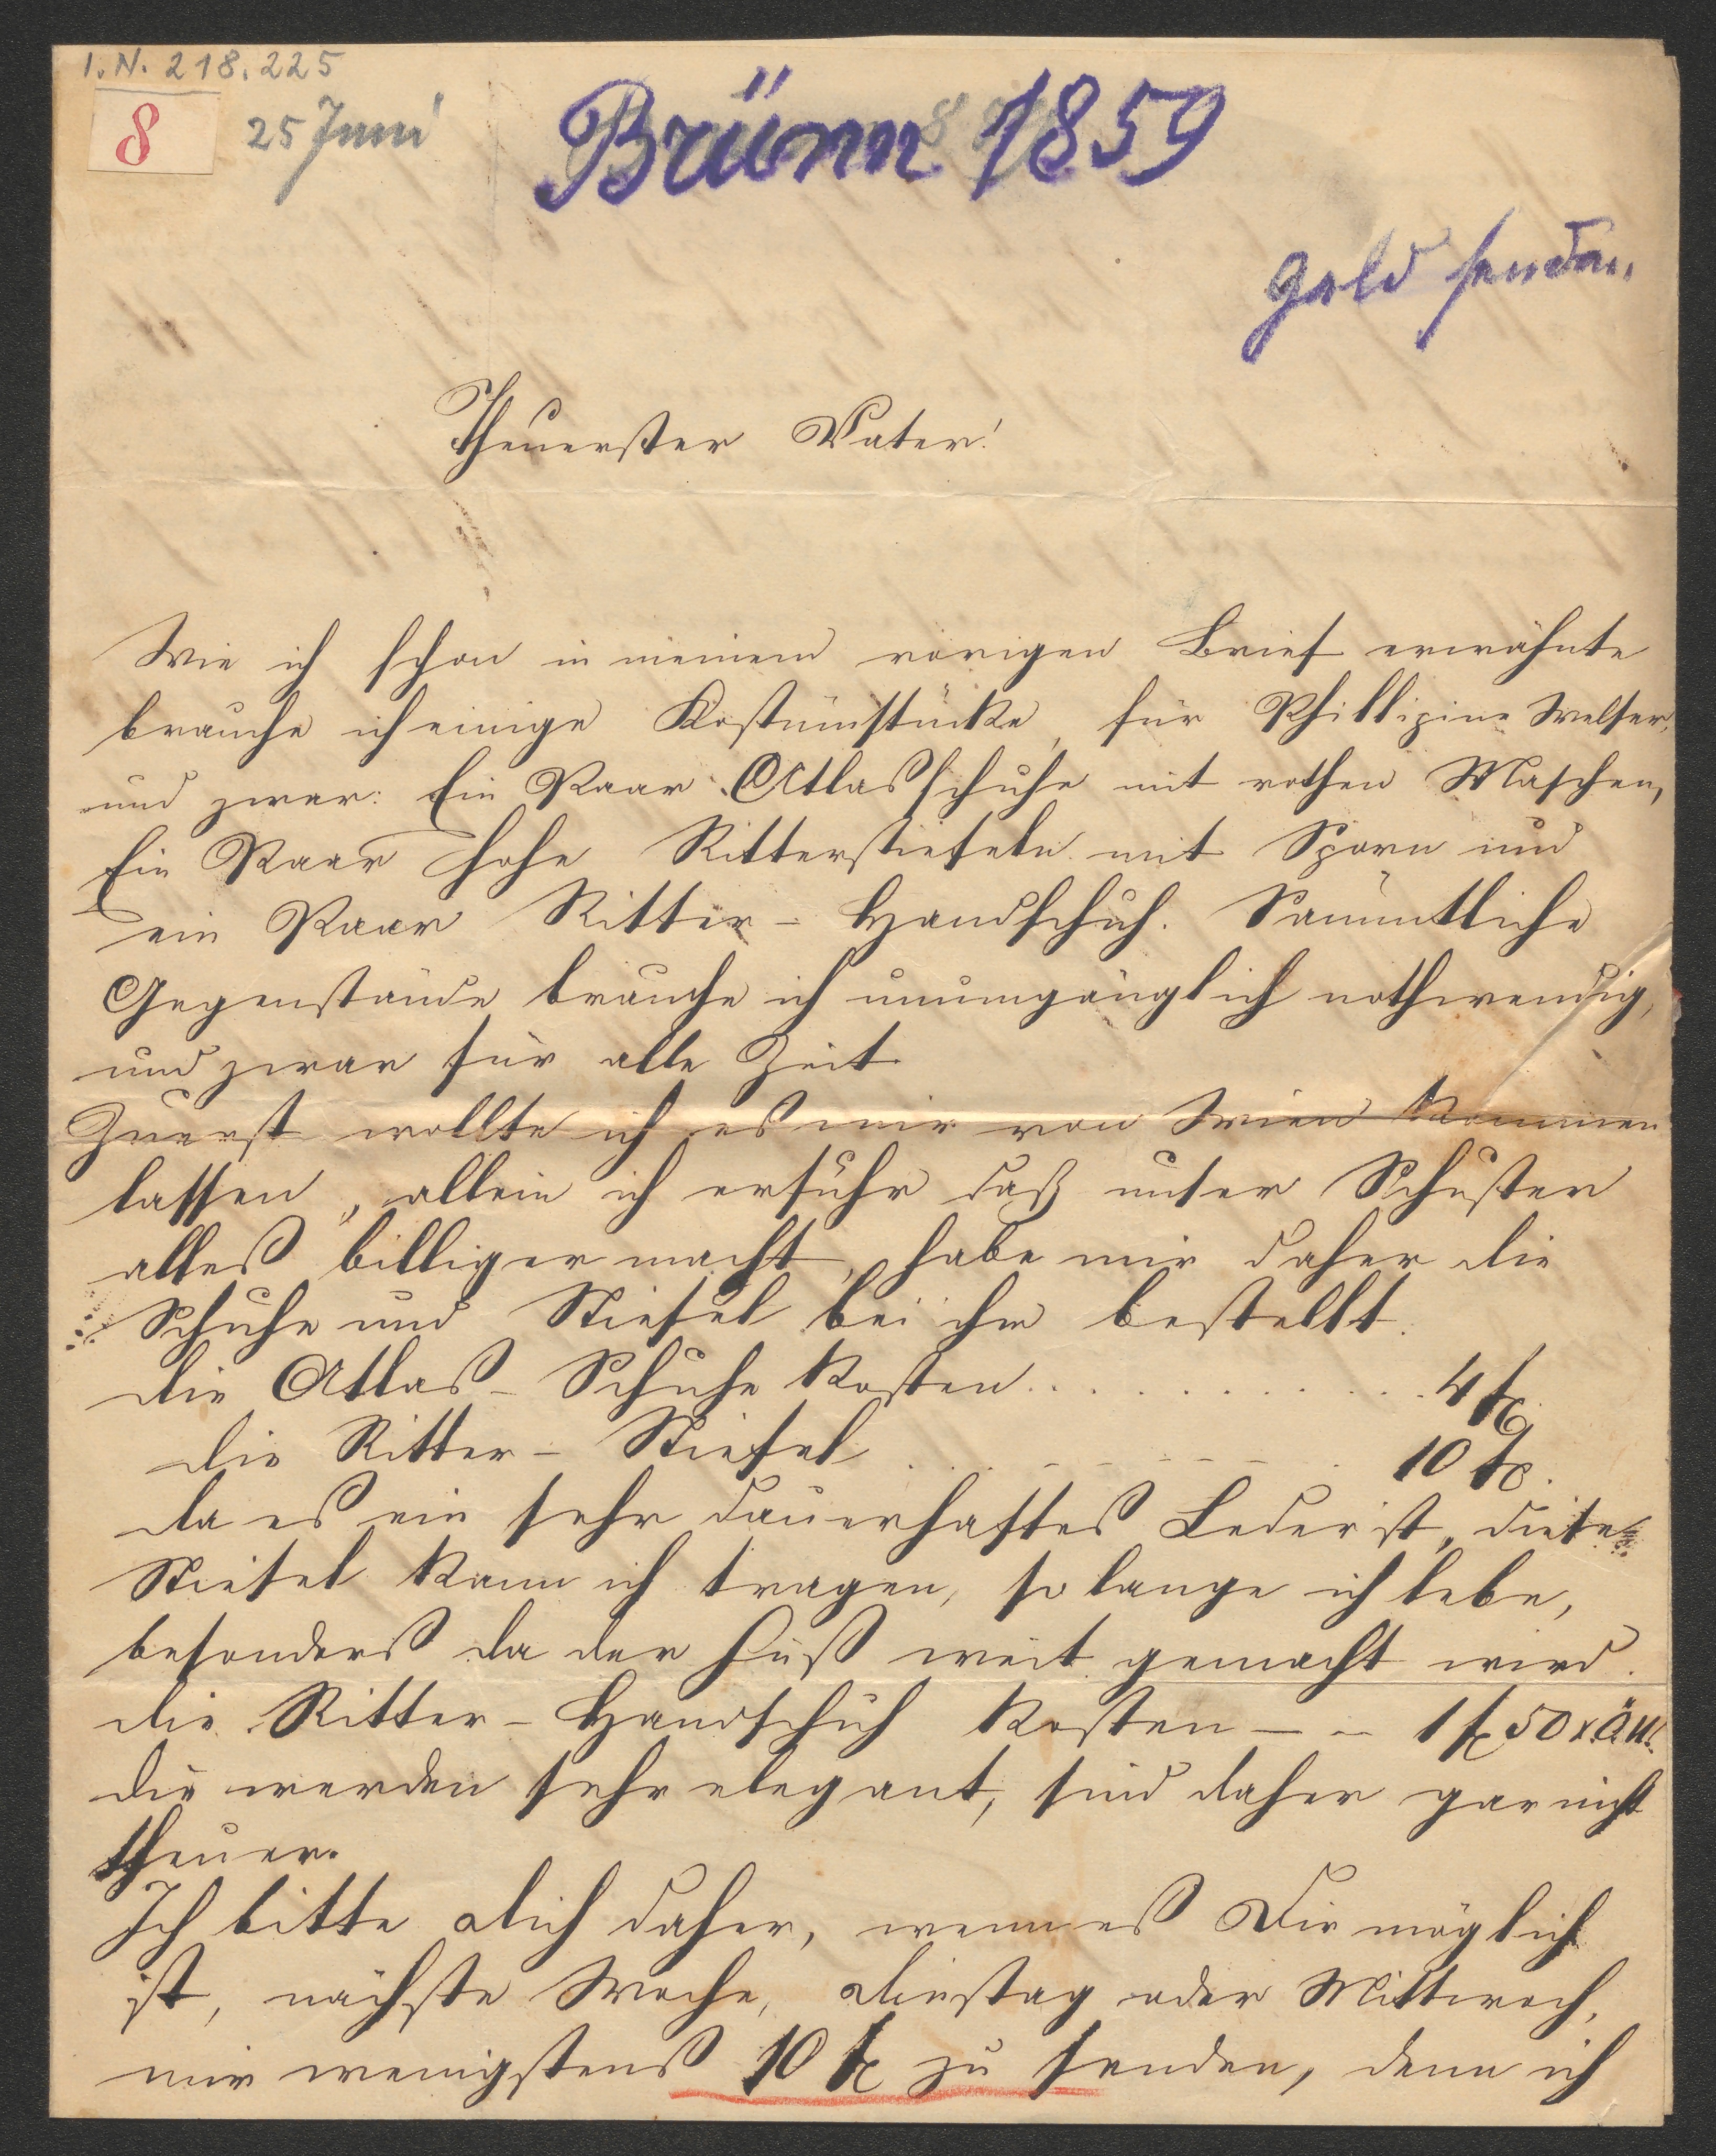 I.N. 218.225
8
25 Juni
Brünn 1859
Geld senden
Theuerster Vater!
Wie ich schon in meinem vorigen Brief erwähnte
brauche ich einige Kostümstücke, für Phillipine Welser,
und zwar: Ein Paar Atlasschuhe mit rothen Maschen,
Ein Paar hohe Ritterstiefeln mit Sporn und
ein Paar Ritter-Handschuh. Sämmtliche
Gegenstände brauche ich unumgänglich nothwendig,
und zwar für alle Zeit.
Zuerst wollte ich es mir von Wien kommen
lassen, allein ich erfuhr daß unser Schuster
alles billiger macht, habe mir daher die
Schuhe und Stiefel bei ihm bestellt.
die Atlas-Schuhe kosten . . . . . . . . . . . 4 fl.
die Ritter-Stiefel . . . - - - - - - . 10 fl.
da es ein sehr dauerhaftes Leder ist, diese
Stiefel kann ich tragen, so lange ich lebe,
besonders da der Fuß weit gemacht wird.
die Ritter-Handschuh kosten - - 1 fl 50 x ÖW.
die werden sehr elegant, sind daher gar nicht
theuer.
Ich bitte dich daher, wenn es Dir möglich
ist, nächste Woche, Dienstag oder Mittwoch,
mir wenigstens 10 fl zu senden, denn ich